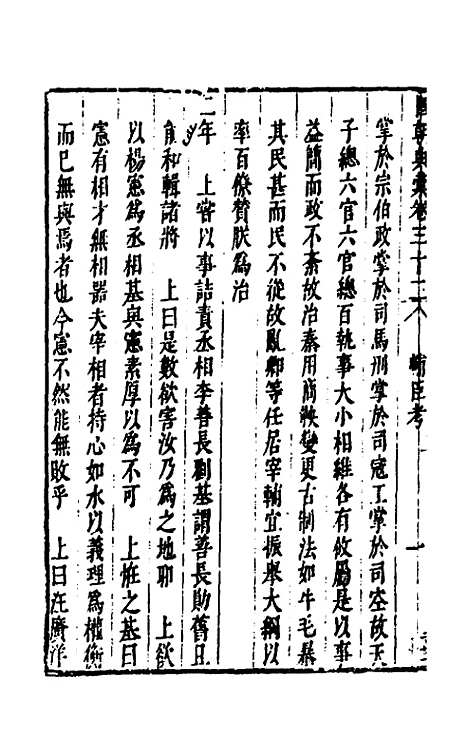 皇朝典彙卷三十二 輔臣考 一
掌於宗伯政掌於司馬刑掌於司寇工掌於司空故天
子總六官六官總百執事大小相維各有攸屬是以事
益簡而政不紊故治秦用商鞅變更古制法如牛毛暴
其民甚而民不從故亂卿等任居宰輔宜振舉大綱以
率百僚贊朕為治
二年 上嘗以事詰責丞相李善長劉基謂善長勛舊且
能和輯諸將 上曰是數欲害汝乃為之地耶 上欲
以楊憲為丞相基與憲素厚以為不可 上恠之基曰
憲有相才無相器夫宰相者持心如水以義理為權衡
而巳無與焉者也今憲不然能無敗乎 上曰汪廣洋